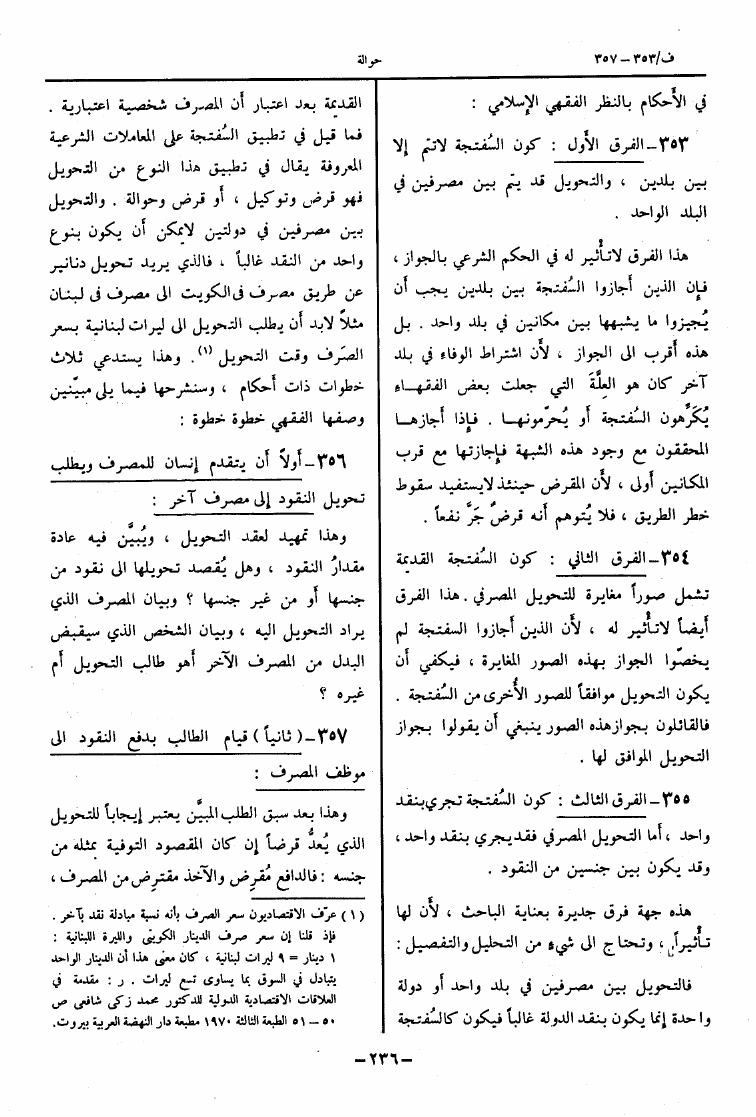 ف/٣٥٣ – ٣٥٧
حوالة
في الأحكام بالنظر الفقهي الإسلامي :
٣٥٣ــ الفرق الأول : كون السُفتجة لاتتم إلا
بين بلدين ، والتحويل قد يتم بين مصرفين في
البلد الواحد .
هذا الفرق لاتأثير له في الحكم الشرعي بالجواز ،
فإن الذين أجازوا السُفتجة بين بلدين يجب أن
يُجيزوا ما يشبهها بين مكانين في بلد واحد . بل
هذه أقرب الى الجواز ، لأن اشتراط الوفاء في بلد
آخر كان هو العِلَّةَ التي جعلت بعض الفقهـاء
يُكَرِّهون السُفتجة أو يُحرّمونهـا . فإذا أجازهـا
المحققون مع وجود هذه الشبهة فإجازتها مع قرب
المكانين أولى ، لأن المقرض حينئذ لايستفيد سقوط
خطر الطريق ، فلا يُتوهم أنه قرضٌ جَرَّ نفعاً .
٣٥٤ــ الفرق الثاني : كون السُفتجة القديمة
تشمل صوراً مغايرة للتحويل المصرفي . هذا الفرق
أيضاً لاتأثير له ، لأن الذين أجازوا السفتجة لم
يخصّوا الجواز بهذه الصور المغايرة ، فيكفي أن
يكون التحويل موافقاً للصور الأخرى من السُفتجة .
فالقائلون بجواز هذه الصور ينبغي أن يقولوا بجواز
التحويل الموافق لها .
٣٥٥ــ الفرق الثالث : كون السُفتجة تجري بنقد
واحد ، أما التحويل المصرفي فقد يجري بنقد واحد ،
وقد يكون بين جنسين من النقود .
هذه جهة فرق جديرة بعناية الباحث ، لأن لها
تأثيراً ، وتحتاج الى شيء من التحليل والتفصيل :
فالتحويل بين مصرفين في بلد واحد أو دولة
واحدة إنما يكون بنقد الدولة غالباً فيكون كالسُفتجة
القديمة بعد اعتبار أن المصرف شخصية اعتبارية .
فما قيل في تطبيق السُفتجة على المعاملات الشرعية
المعروفة يقال في تطبيق هذا النوع من التحويل
فهو قرض وتوكيل ، أو قرض وحوالة . والتحويل
بين مصرفين في دولتين لايمكن أن يكون بنوع
واحد من النقد غالباً ، فالذي يريد تحويل دنانير
عن طريق مصرف في الكويت الى مصرف في لبنان
مثلاً لابد أن يطلب التحويل الى ليرات لبنانية بسعر
الصَرف وقت التحويل (١). وهذا يستدعي ثلاث
خطوات ذات أحكام ، وسنشرحها فيما يلي مبيّنين
وصفها الفقهي خطوة خطوة :
٣٥٦ــ أولاً أن يتقدم إنسان للمصرف ويطلب
تحويل النقود إلى مصرف آخر :
وهذا تمهيد لعقد التحويل ، ويُبيَّن فيه عادة
مقدارُ النقود ، وهل يُقصد تحويلها الى نقود من
جنسها أو من غير جنسها ؟ وبيان المصرف الذي
يراد التحويل اليه ، وبيان الشخص الذي سيقبض
البدل من المصرف الآخر أهو طالب التحويل أم
غيره ؟
٣٥٧ــ ( ثانياً ) قيام الطالب بدفع النقود الى
موظف المصرف :
وهذا بعد سبق الطلب المبيَّن يعتبر إيجاباً للتحويل
الذي يُعدُّ قرضاً إن كان المقصود التوفية بمثله من
جنسه : فالدافع مُقرِض والآخذ مقترض من المصرف ،
(١) عرّف الاقتصاديون سعر الصرف بأنه نسبة مبادلة نقد بآخر .
فإذ قلنا إن سعر صرف الدينار الكويتي والليرة اللبنانية :
١ دينار = ٩ ليرات لبنانية ، كان معنى هذا أن الدينار الواحد
يتبادل في السوق بما يساوي تسع ليرات . ر : مقدمة في
العلاقات الاقتصادية الدولية للدكتور محمد زكي شافعي ص
٥٠ – ٥١ الطبعة الثالثة ١٩٧٠ مطبعة دار النهضة العربية بيروت.
–٢٣٦–